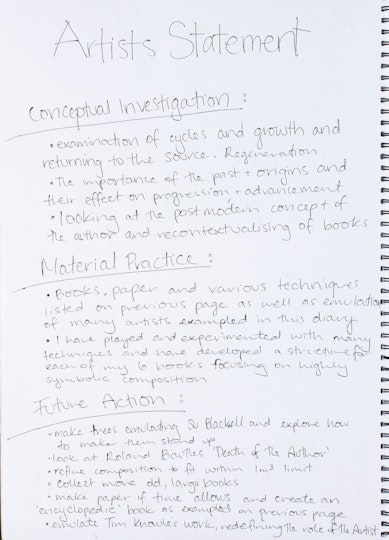 Artists Statement
Conceptual Investigation :
• examination of cycles and growth and
returning to the source. Regeneration.
• The importance of the past + origins and
their effect on progression + advancement
• looking at the postmodern concept of
the author and recontextualising of books
Material Practice :
• Books, paper and various techniques
listed on previous page as well as emulation
of many artists exampled in this diary
• I have played and experimented with many
techniques and have developed a structure for
each of my 6 books focusing on highly
symbolic composition
Future Action :
• make trees emulating Su Blackell and explore how
to make them stand up
• look at Roland Barthes 'Death of the Author'
• refine composition to fit within 1m³ limit
• collect more old, large books
• make paper if time allows and create an
'encyclopedic' book as exampled on previous page
• emulate Tim Knowles work, redefining the role of the Artist